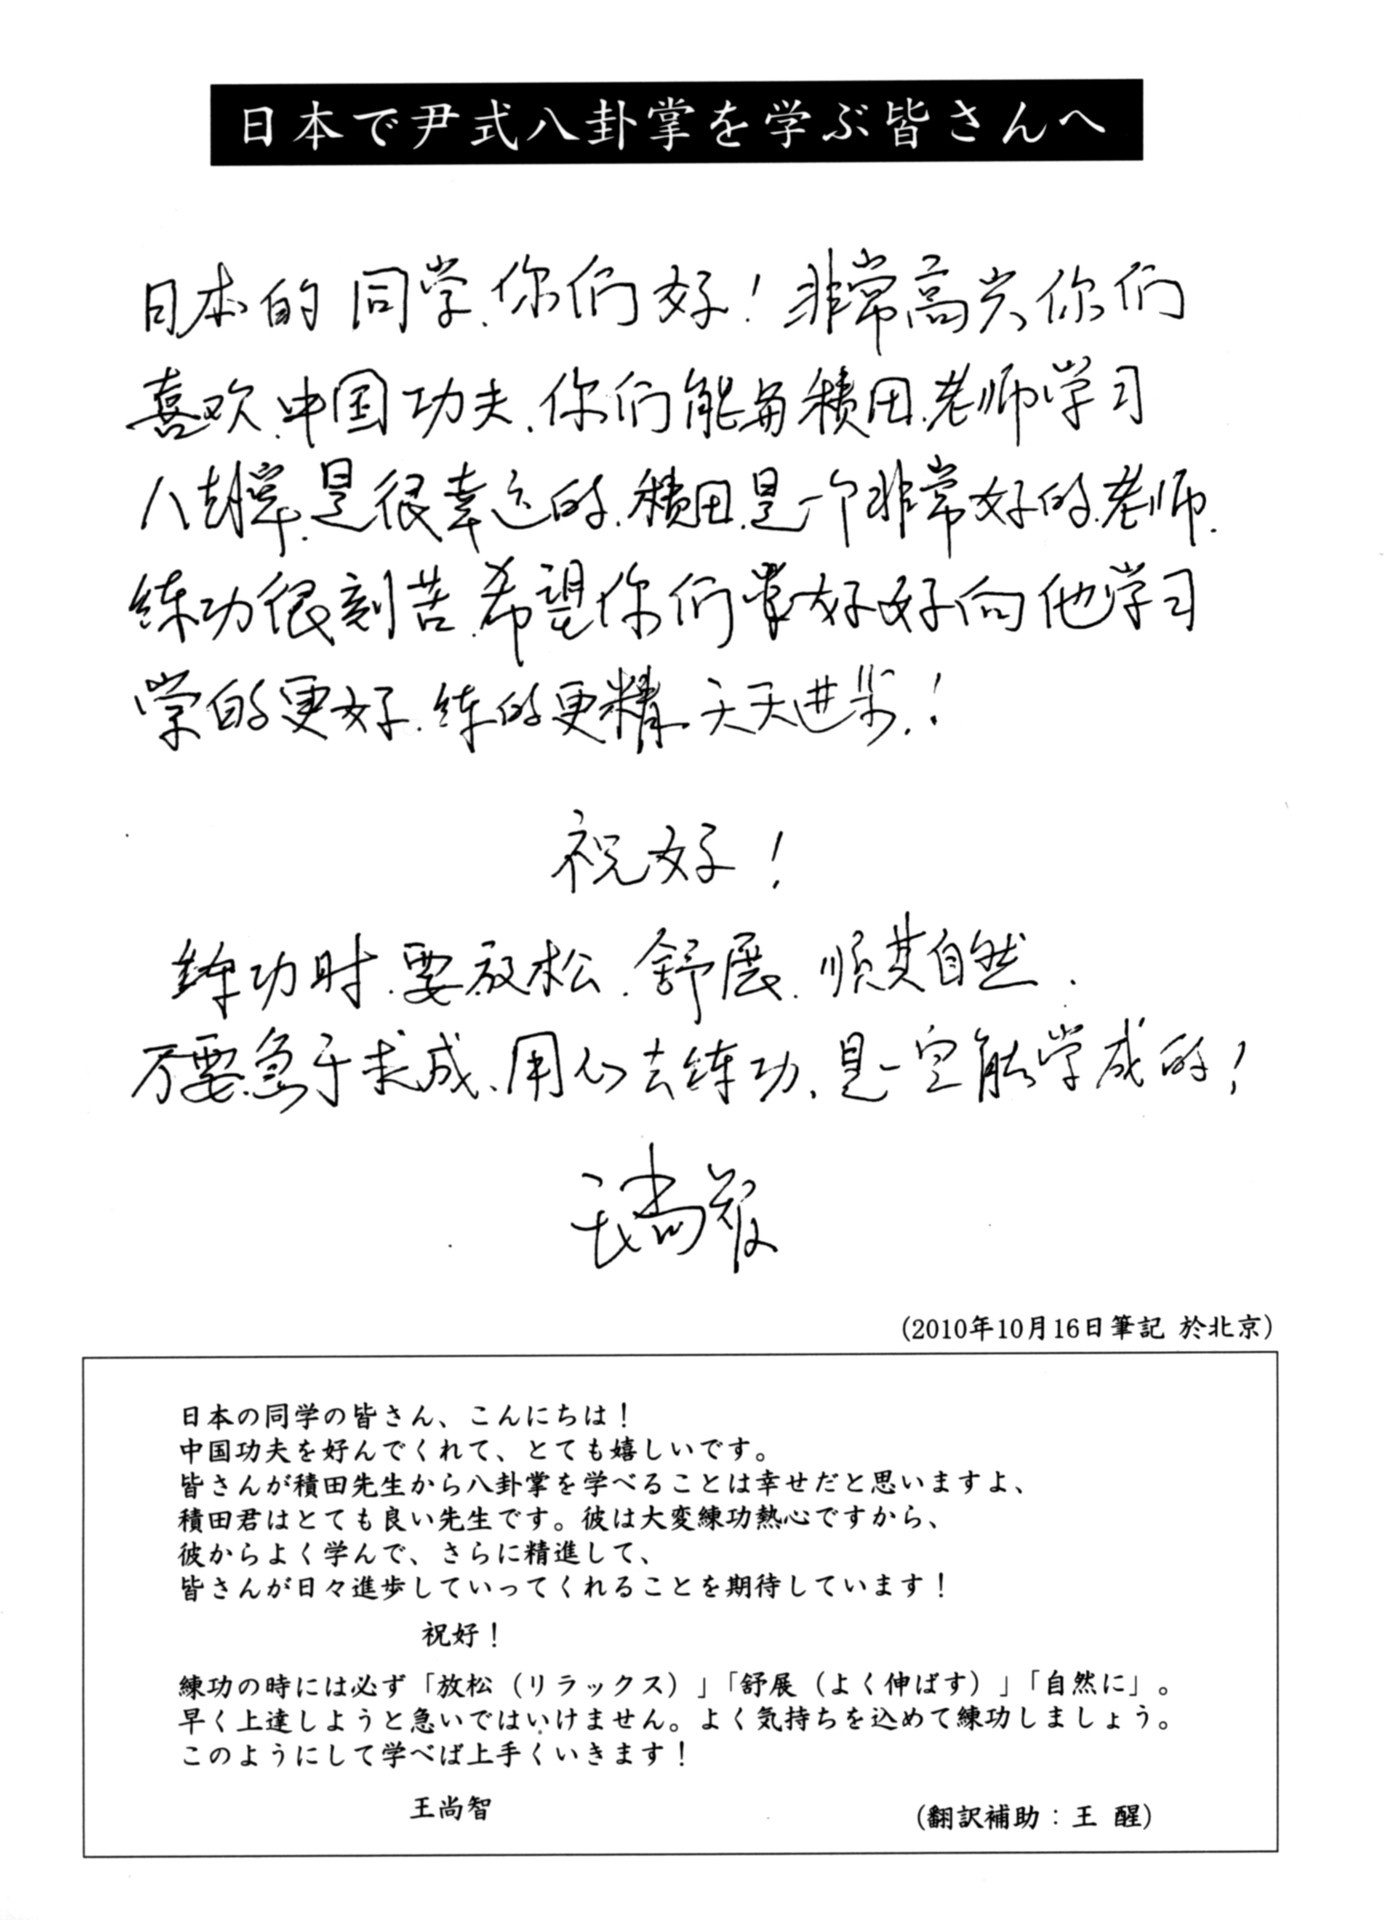 日本で尹式八卦掌を学ぶ皆さんへ
日本的同学、你们好！非常高兴你们
喜欢、中国功夫、你们能与積田、老师学习
八卦掌、是很幸运的、積田、是一个非常好的、老师、
练功很刻苦、希望你们好好向他学习
学的更好、练的更精、天天进步、！
祝好！
练功时、要放松、舒展、顺其自然、
不要急于求成、用心去练功、是一定能学成的！
王尚智
(2010年10月16日筆記 於北京)
日本の同学の皆さん、こんにちは！
中国功夫を好んでくれて、とても嬉しいです。
皆さんが積田先生から八卦掌を学べることは幸せだと思いますよ、
積田君はとても良い先生です。彼は大変練功熱心ですから、
彼からよく学んで、さらに精進して、
皆さんが日々進歩していってくれることを期待しています！
祝好！
練功の時には必ず「放松（リラックス）」「舒展（よく伸ばす）」「自然に」。
早く上達しようと急いではいけません。よく気持ちを込めて練功しましょう。
このようにして学べば上手くいきます！
王尚智
(翻訳補助：王 醒)